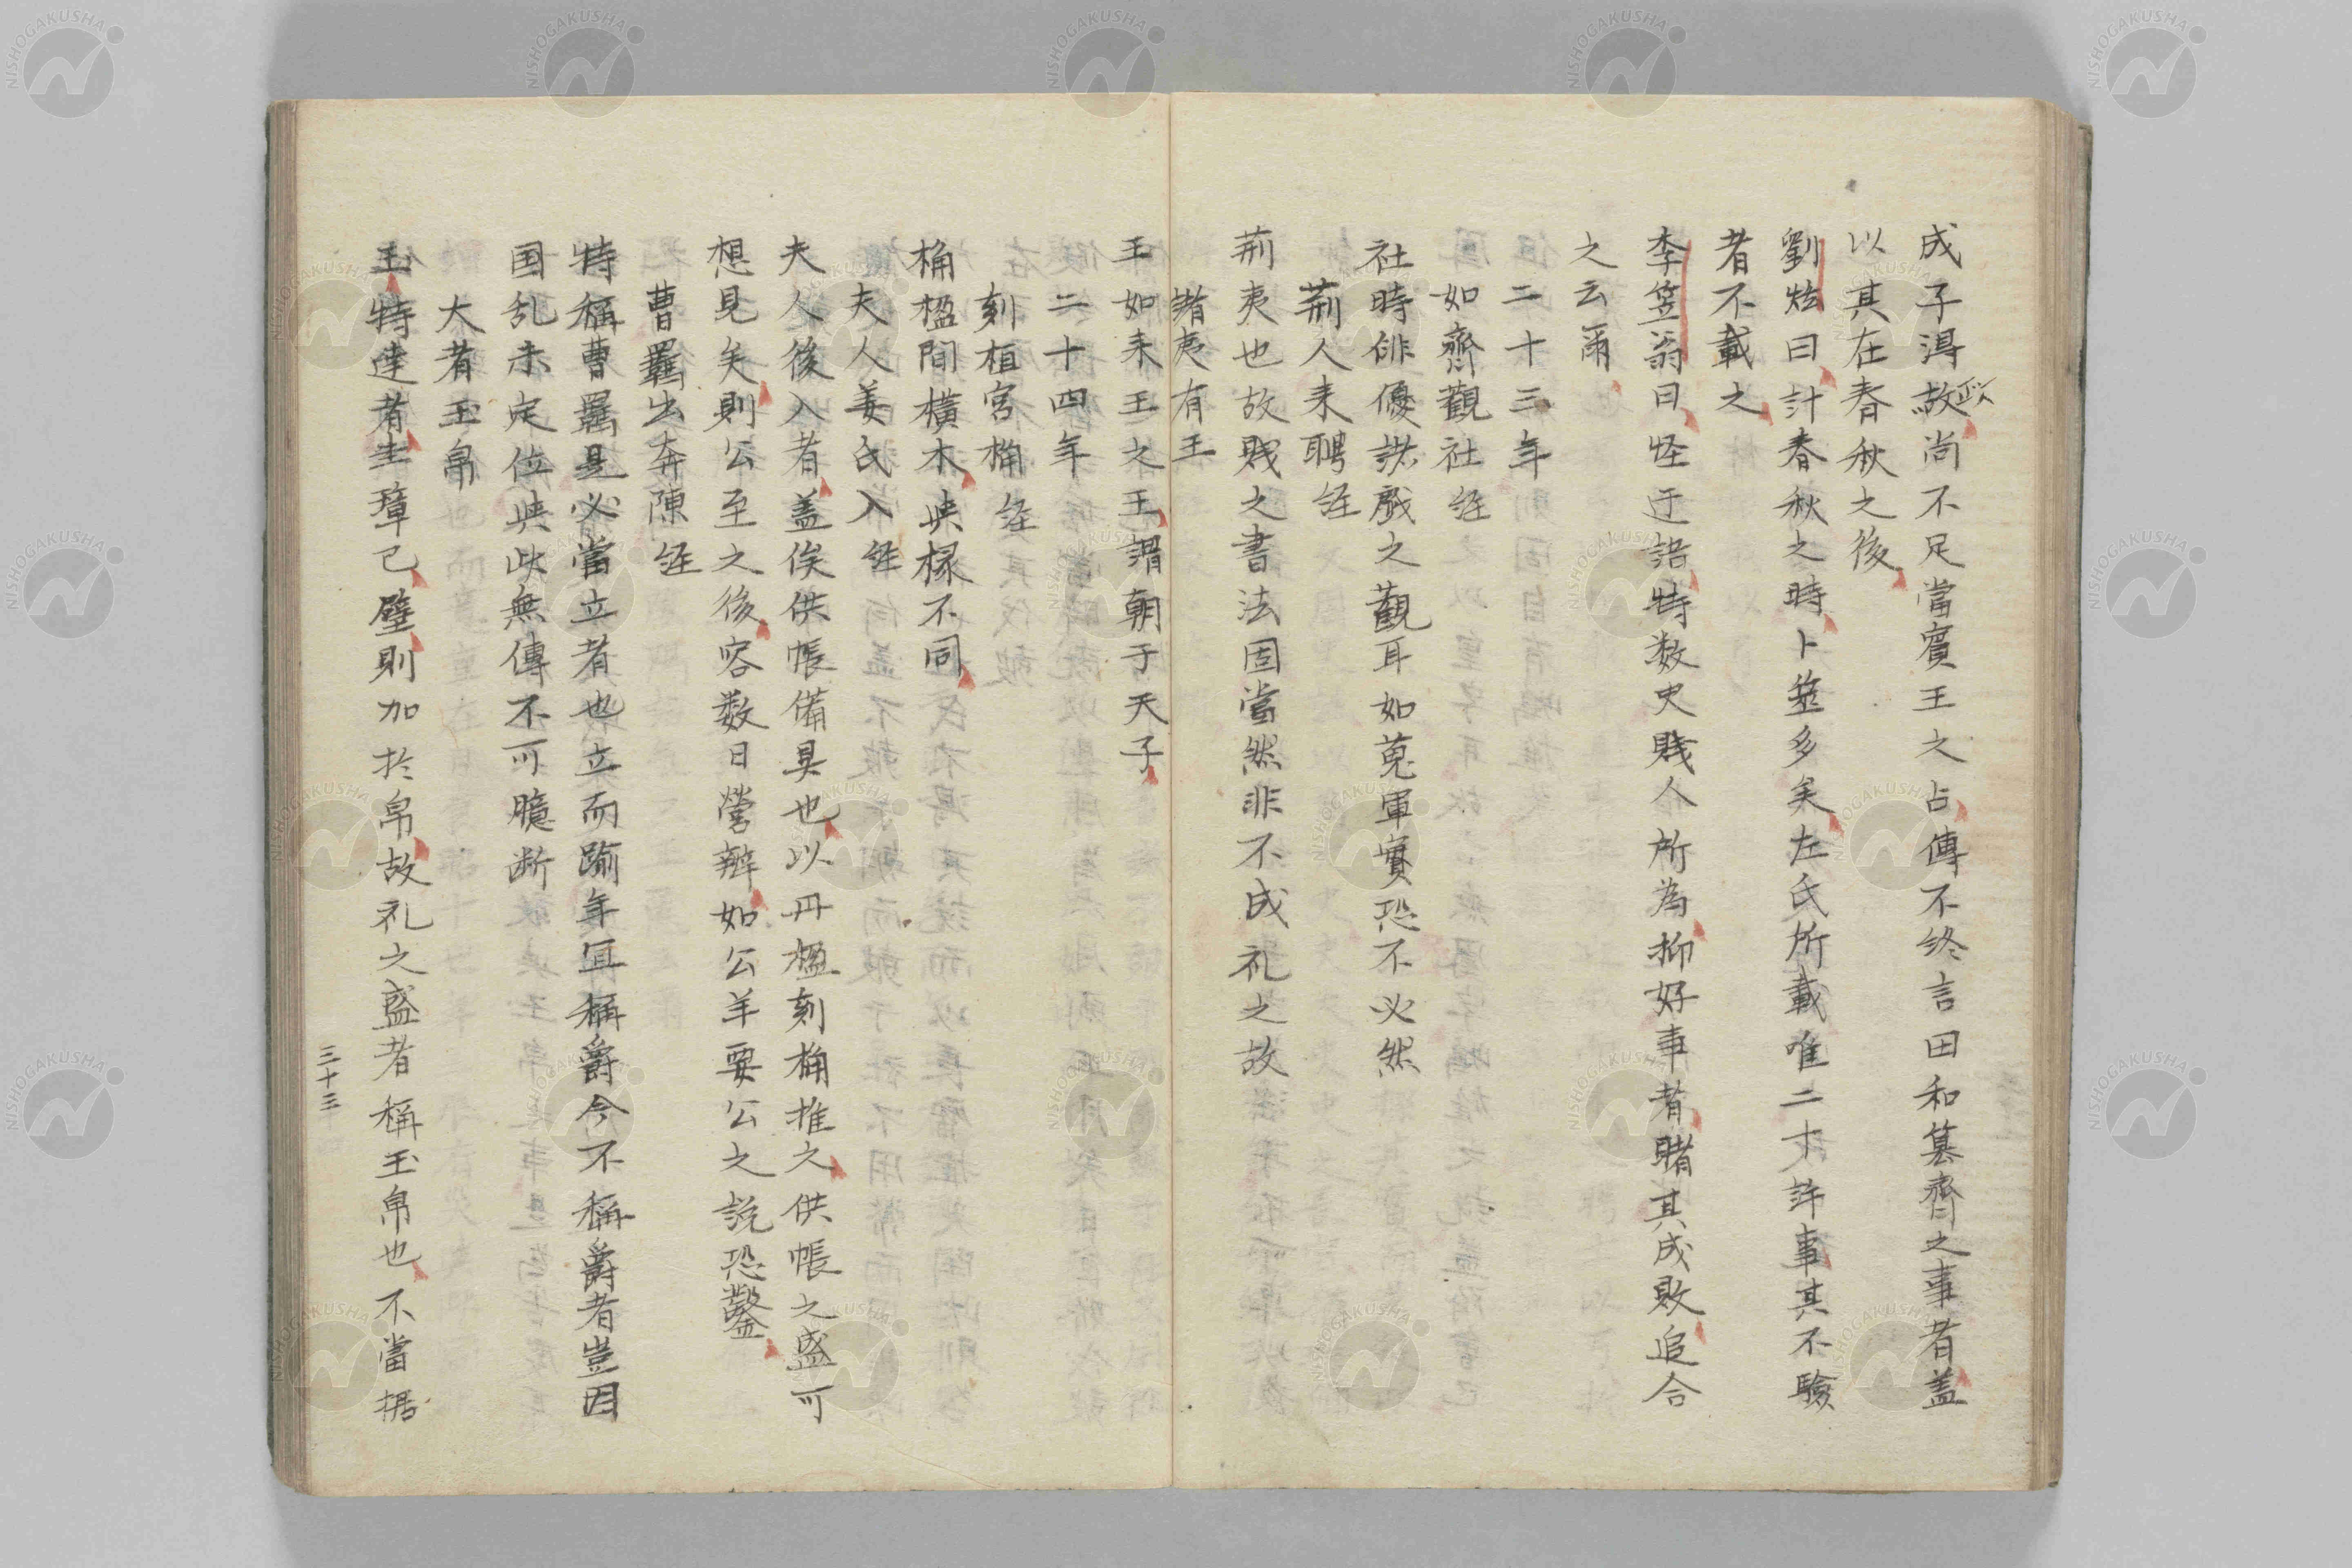 成子得政故尚不足當賓王之占傳不終言田和簒齊之事者盖
以其在春秋之後
劉炫曰計春秋之時卜筮多矣左氏所載唯二十許事其不驗
者不載之
李笠翁曰怪迂語特数史賤人所為抑好事者睹其成敗追合
之云爾
二十三年
如齊觀社 経
社時俳優諧戲之觀耳如蒐軍實恐不必然
荊人来聘 経
荊夷也故賤之書法固當然非不成礼之故
諸夷有王
王如来王之王謂朝于天子
二十四年
刻桓宮桷 経
桷楹間橫木與椽不同
夫人姜氏入 経
夫人後入者盖俟供帳備具也以丹楹刻桷推之供帳之盛可
想見矣則公至之後容数日營辨如公羊要公之説恐鑿
曹羈出奔陳 経
特稱曹羈是必當立者也立而踰年冝稱爵今不稱爵者豈因
国乱未定位與此無傳不可臆断
大者玉帛
玉特達者圭璋已璧則加於帛故礼之盛者稱玉帛也不當据
三十三
NISHOGAKUSHA